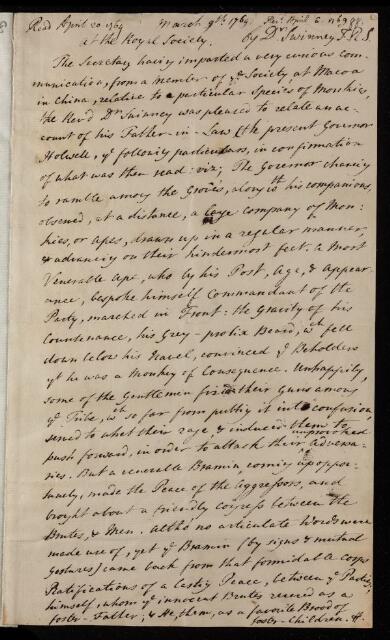 Read April 20. 1769 March 9th. 1769. Rec. April 6. 1769
at the Royal Society. by Dr Swinney F.R.S
The Secretary having imparted a very curious com-
munication, from a Member of ye Society, at Macoa
in China, relative to a particular Species of Monkies,
the Revd Dr Swinney was pleased to relate an ac-
count of his Father-in-Law (the present Governor
Holwell, ye following particulars, in confirmation
of what was then read: viz; The Governor chancing
to ramble among the Groves, along wth his companions,
observed, at a distance, a large company of Mon-
kies, or Apes, drawn up in a regular manner,
& advancing on their hindermost feet. A most
Venerable Ape, who by his Post, Age, & appear-
ance, bespoke himself Commandant of the
Party, marched in Front: the Gravity of his
Countenance, his Grey-prolix Beard, wch fell
down below his Navel, convinced ye Beholders
yt he was a Monkey of Consequence. Unhappily,
some of the Gentlemen fired their Guns among
ye Tribe, wch so far from putting it into confusion,
served to whet their rage, & induced them to
push forward, in order to attack their unprovoked adversa-
ries. But a venerable Bramin coming up oppor-
tunely, made the Peace of the aggressors, and
brought about a friendly congress between the
Brutes, & Men. altho' no articulate Words were
made use of, yet ye Bramin (by signs & mutual
gestures) came back from that formidable corps
Ratifications of a lasting Peace, between ye Parties;
himself, whom ye innocent Brutes revered as a
foster-Father, & He, them, as a favorite Brood of
foster-Children. &.